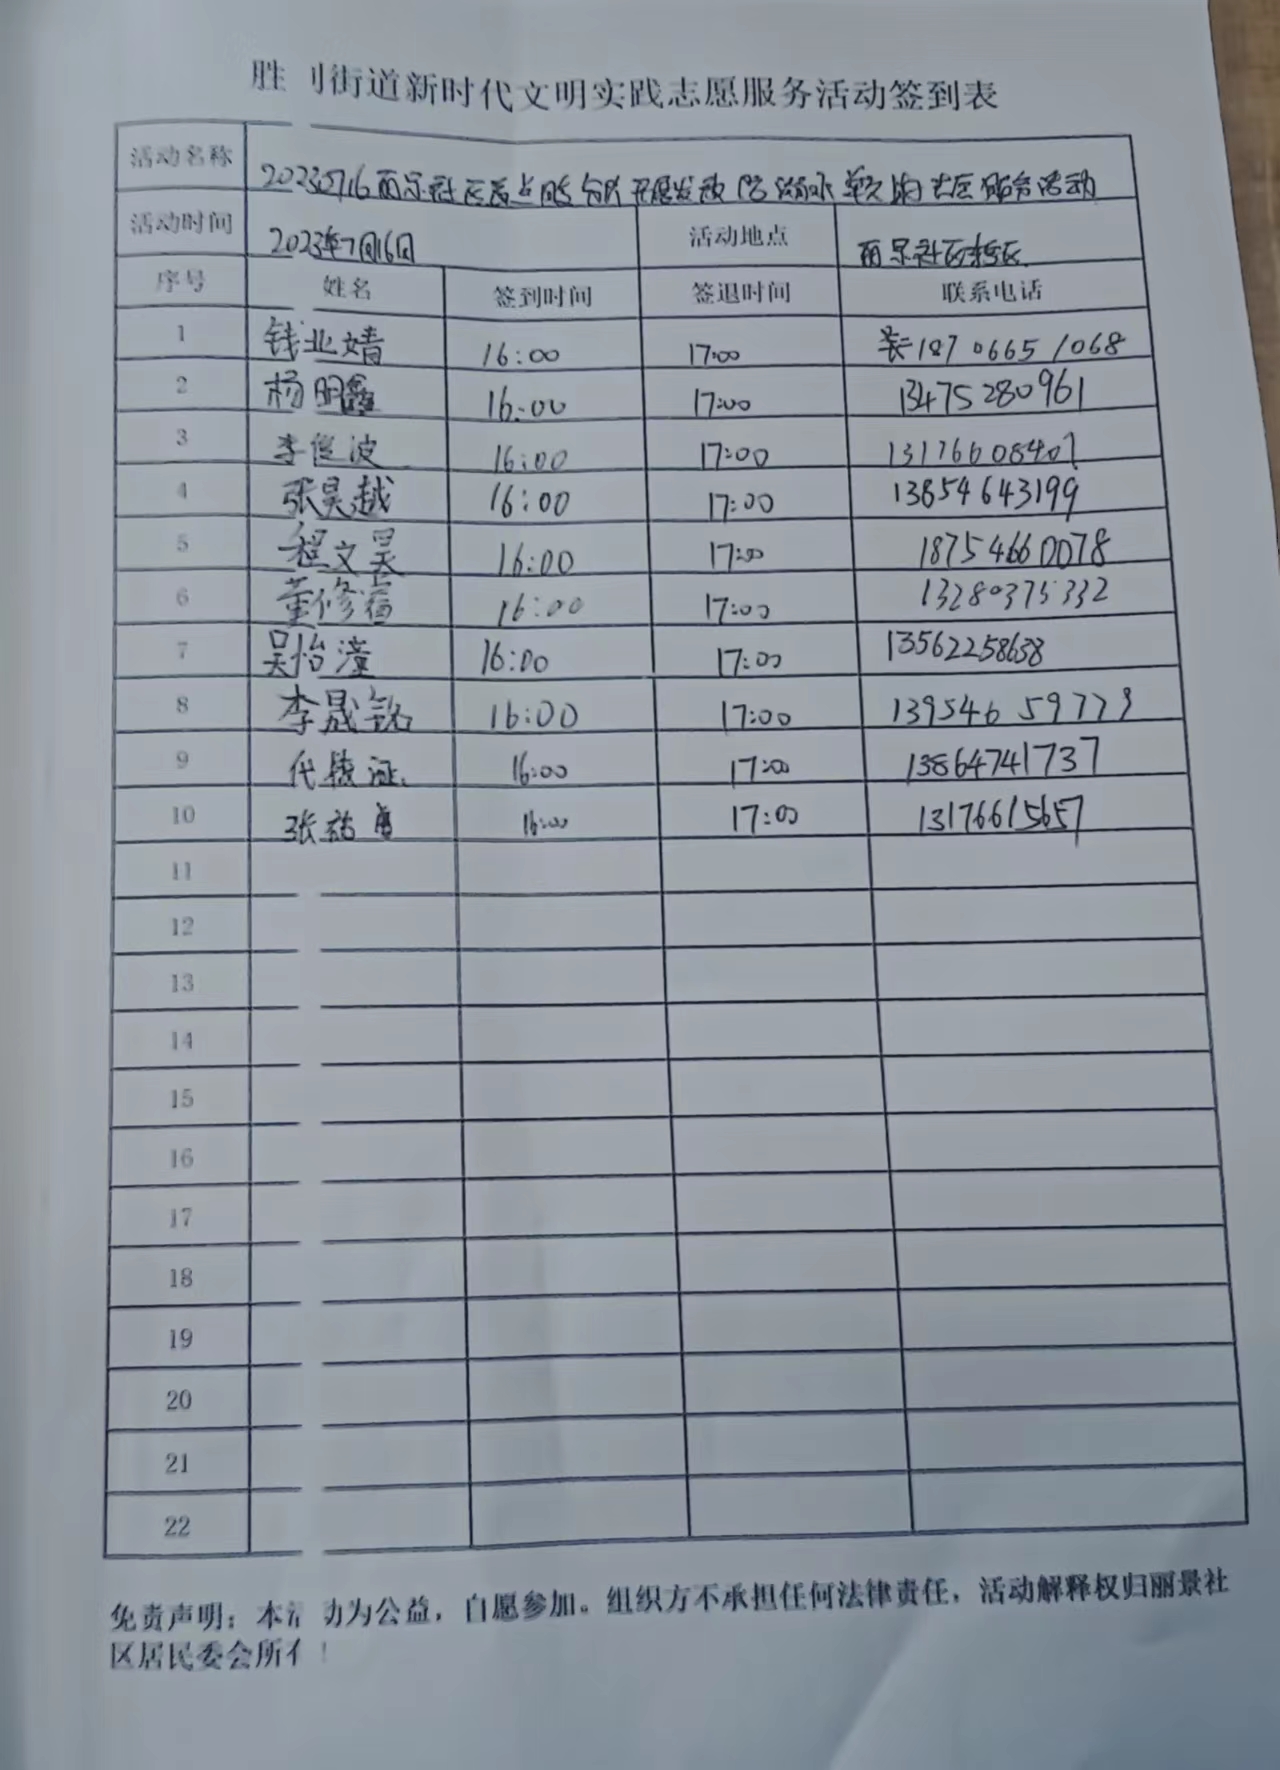 胜利街道新时代文明实践志愿服务活动签到表
活动名称 20230716丽景社区 防溺水 活动
活动时间 2023年7月16日 活动地点 丽景社区
序号 姓名 签到时间 签退时间 联系电话
1 钱业婧 16:00 17:00 18706651068
2 杨明鑫 16:00 17:00 13475280961
3 李俊波 16:00 17:00 13176608407
4 张昊越 16:00 17:00 13854643199
5 程文昊 16:00 17:00 18754660078
6 董修 16:00 17:00 13280375332
7 吴怡潼 16:00 17:00 13562258658
8 李晟铭 16:00 17:00 13954659773
9 代 16:00 17:00 13864741737
10 张 16:00 17:00 13176615657
11
12
13
14
15
16
17
18
19
20
21
22
免责声明：本活动为公益，自愿参加。组织方不承担任何法律责任，活动解释权归丽景社
区居民委会所有！